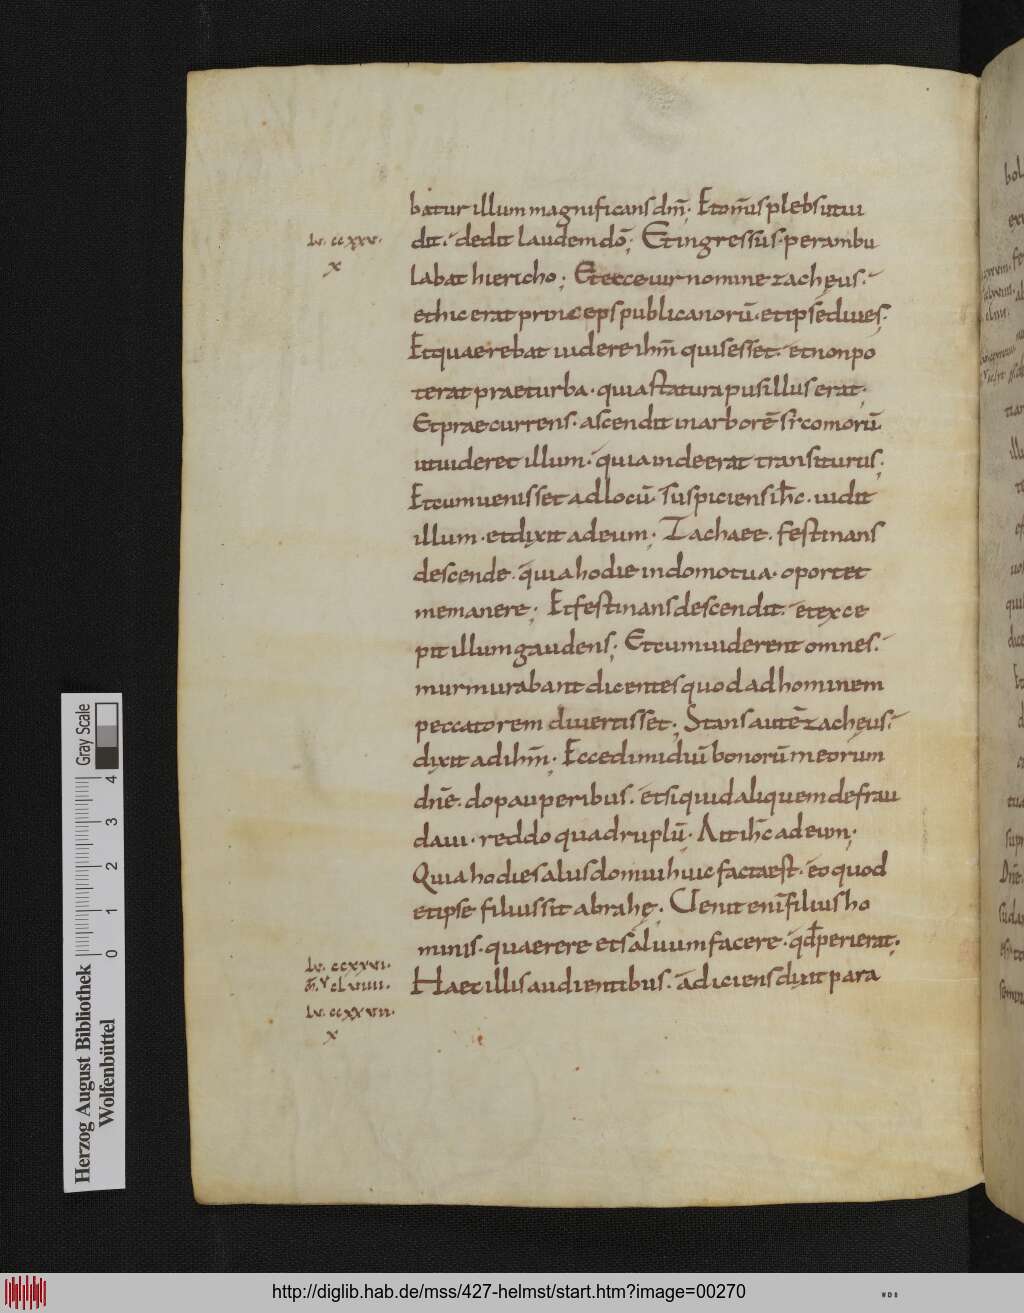 batur illum magnificans dm̄. Et om̄s plebs ut ui
dit. dedit laudem dō; Et ingressus. perambu
labat hiericho; Et ecce uir nomine zachęus.
et hic erat princeps publicanorū. et ipse diues;
Et quaerebat uidere ihm̄ quis esset. et non po
terat prae turba. quia statura pusillus erat;
Et praecurrens. ascendit in arborē sicomorū
ut uideret illum. quia inde erat transiturus;
Et cum uenisset ad locū. suspiciens ihc̄. uidit
illum. et dixit ad eum; Zachaee. festinans
descende. quia hodie in domo tua. oportet
me manere; Et festinans descendit. et exce
pit illum gaudens; Et cum uiderent omnes.
murmurabant dicentes quod ad hominem
peccatorem diuertisset; Stans autē zachęus.
dixit ad ihm̄; Ecce dimidiū bonorū meorum
dn̄e. do pauperibus. et si quid aliquem defrau
daui. reddo quadruplū; Ait ihc̄ ad eum;
Quia hodie salus domui huic facta est. eo quod
et ipse filius sit abrahę; Uenit enī filius ho
minis. quaerere et saluum facere. qđ perierat;
Haec illis audientibus. adiciens dixit para
lv. ccxxv.
x
lv. ccxxvi.
m̄. clviiii.
v
lv. ccxxvii.
x
Herzog August Bibliothek
Wolfenbüttel
0 1 2 3 4
Gray Scale
http://diglib.hab.de/mss/427-helmst/start.htm?image=00270